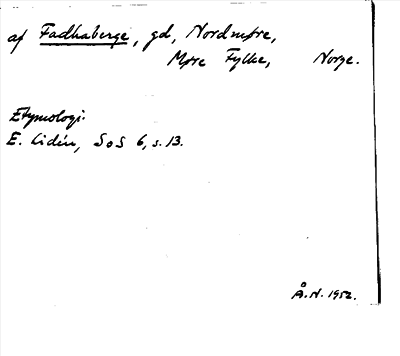 af Fadhaberge, gd, Nordmøre,
Møre Fylke, Norge.
Etymologi:
E. Lidén, SoS 6, s. 13.
Å.N. 1952.